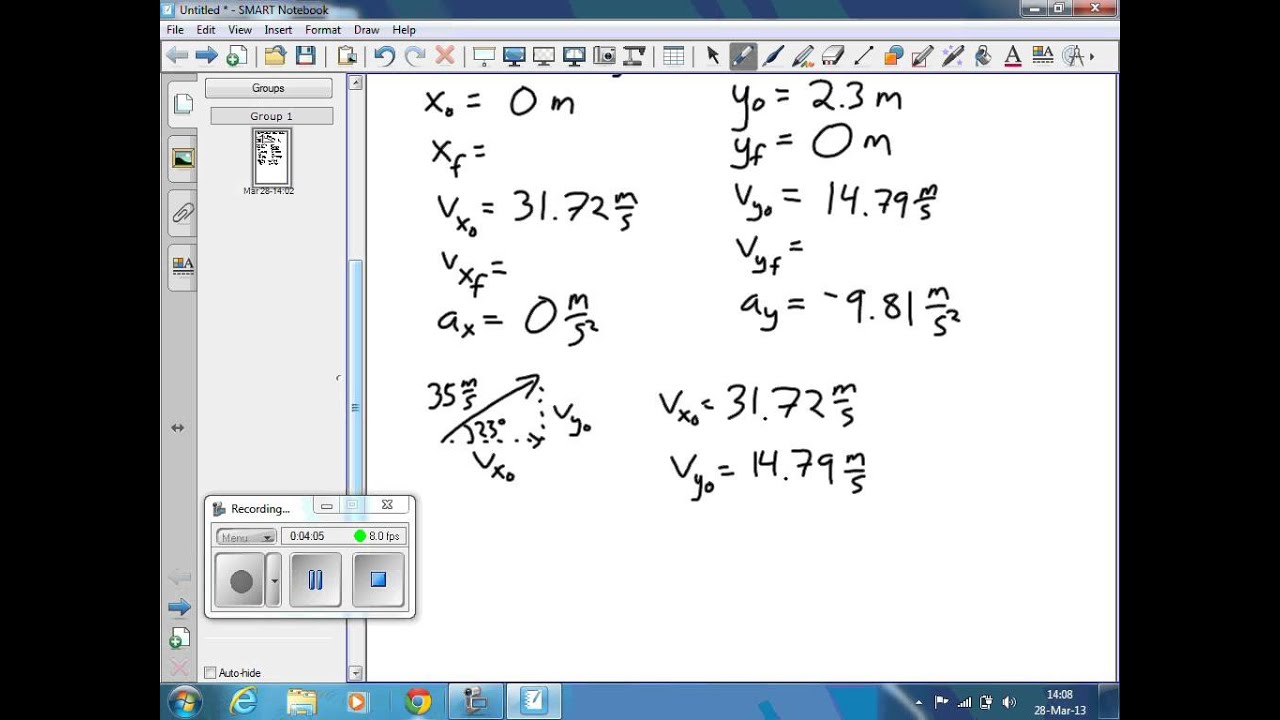 Untitled * - SMART Notebook
File Edit View Insert Format Draw Help
Groups
Group 1
Mar 28-14:02
x₀ = 0 m
x_f =
v_x₀ = 31.72 m/s
v_xf =
a_x = 0 m/s²
y₀ = 2.3 m
y_f = 0 m
v_y₀ = 14.79 m/s
v_yf =
a_y = -9.81 m/s²
35 m/s
23°
v_y₀
v_x₀
v_x₀ = 31.72 m/s
v_y₀ = 14.79 m/s
Recording...
Menu 0:04:05 8.0 fps
Auto-hide
14:08
28-Mar-13